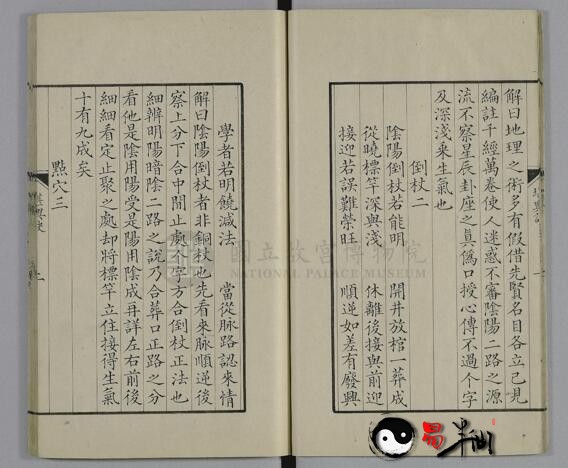 解曰地理之術多有假借先賢名目各立己見
編註千經萬卷使人迷惑不審陰陽二路之源
流不察星辰卦座之真偽口授心傳不過个字
及深淺乘生氣也
倒杖二
陰陽倒杖若能明　開井放棺一葬成
從曉標竿深與淺　休離後接與前迎
接迎若誤難榮旺　順逆如差有廢興
學者若明饒減法　當從脉路認來情
解曰陰陽倒杖者非銅杖也先看來脉順逆後
察上分下合中間止處不字方合倒杖正法也
細辨明陽暗陰二路之說乃合葬口正路之分
看他是陰用陽受是陽用陰成再詳左右前後
細細看定止聚之處却將標竿立住接得生氣
十有九成矣
點穴三
國立故宮博物院
NATIONAL PALACE MUSEUM
易半仙